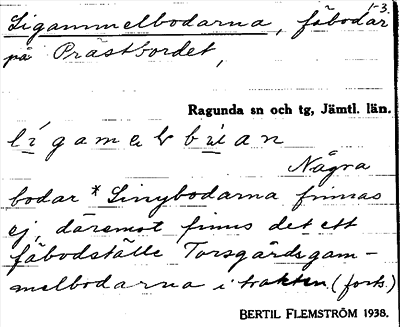 Ligammelbodarna, fäbodar 1-3.
på Prästbordet,
Ragunda sn och tg, Jämtl. län.
Några
bodar *Linybodarna finnas
ej, däremot finns det ett
fäbodställe Torsgårdsgam-
melbodarna i trakten (forts.)
BERTIL FLEMSTRÖM 1938.